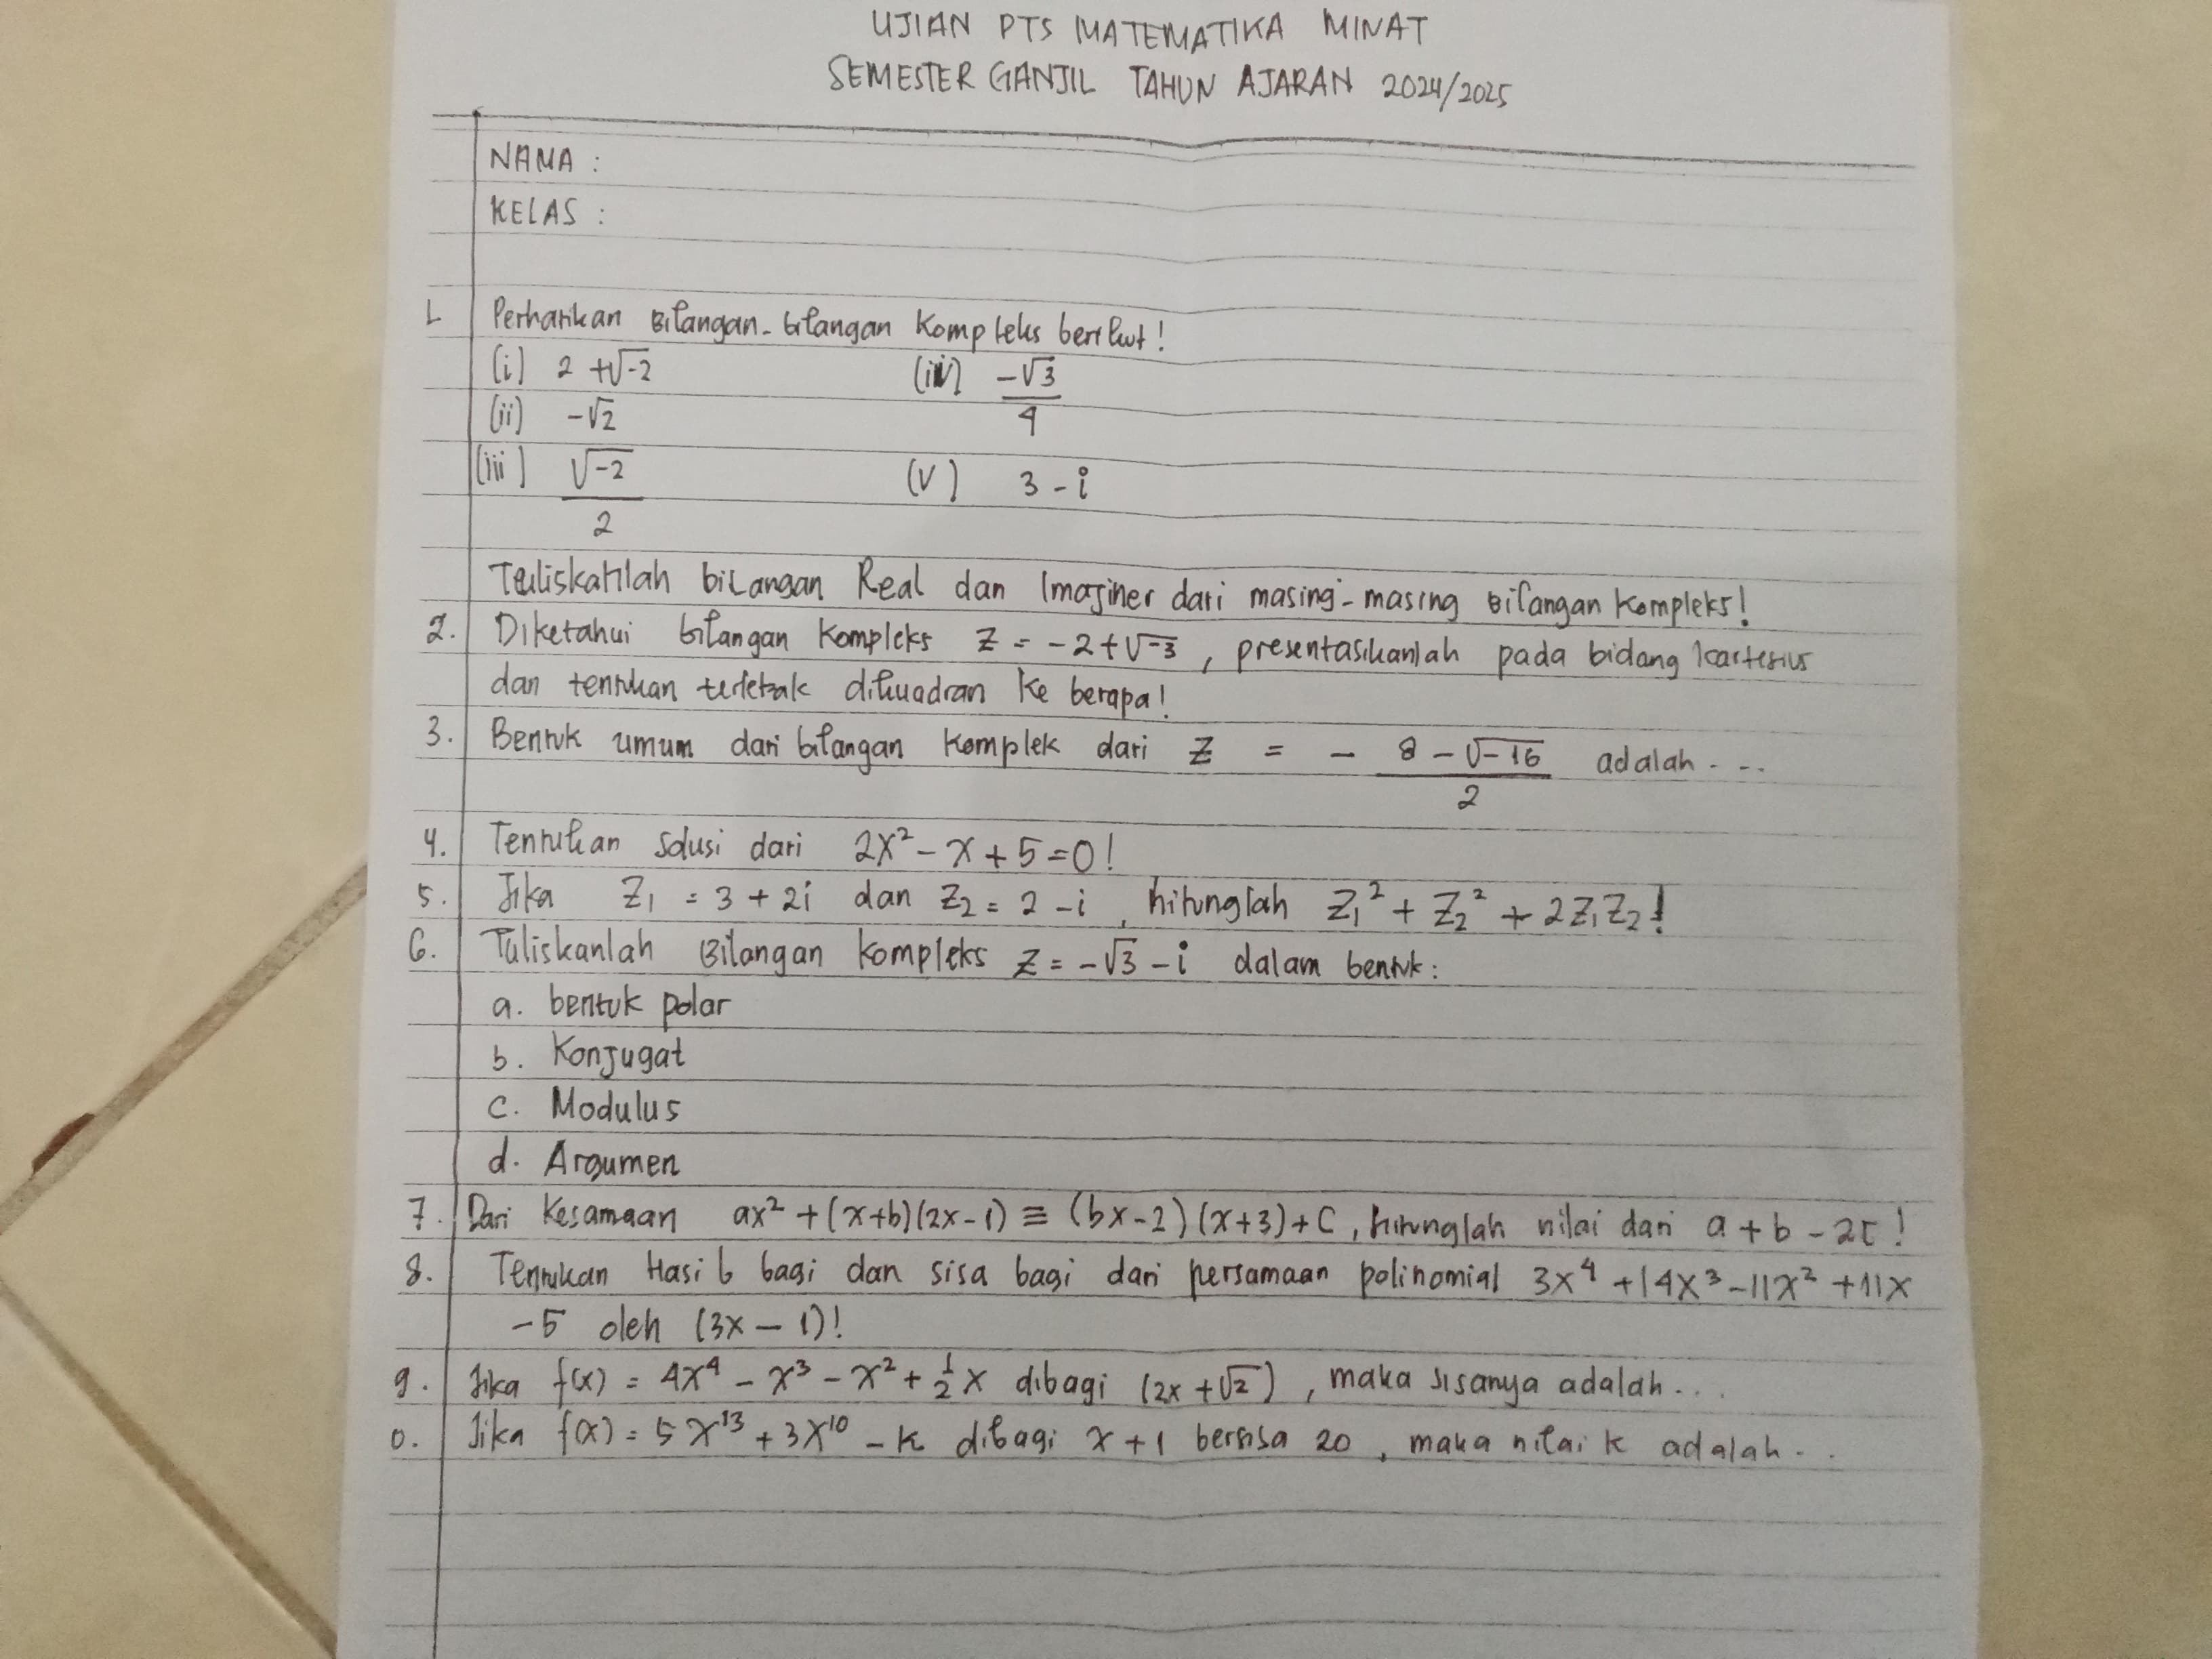 UJIAN PTS MATEMATIKA MINAT
SEMESTER GANJIL TAHUN AJARAN 2024/2025
NAMA :
KELAS :
1. Perhatikan Bilangan-bilangan Kompleks berikut!
(i) 2 + √-2 (iv) -√3/4
(ii) -√2
(iii) √-2/2 (V) 3 - i
Tuliskanlah bilangan Real dan Imajiner dari masing-masing Bilangan Kompleks!
2. Diketahui bilangan Kompleks Z = -2 + √-3, presentasikanlah pada bidang kartesius
dan tentukan terletak dikuadran Ke berapa!
3. Bentuk umum dari bilangan Komplek dari Z = - (8 - √-16)/2 adalah ...
4. Tentukan Solusi dari 2x² - x + 5 = 0!
5. Jika Z₁ = 3 + 2i dan Z₂ = 2 - i, hitunglah Z₁² + Z₂² + 2Z₁Z₂!
6. Tuliskanlah Bilangan Kompleks Z = -√3 - i dalam bentuk:
a. bentuk polar
b. Konjugat
c. Modulus
d. Argumen
7. Dari Kesamaan ax² + (x+b)(2x-1) ≡ (bx-2)(x+3) + C, hitunglah nilai dari a + b - 2c!
8. Tentukan Hasil bagi dan sisa bagi dari persamaan polinomial 3x⁴ + 14x³ - 11x² + 11x
-5 oleh (3x - 1)!
9. Jika f(x) = 4x⁴ - x³ - x² + ½x dibagi (2x + √2), maka sisanya adalah...
0. Jika f(x) = 5x¹³ + 3x¹⁰ - k dibagi x + 1 bersisa 20, maka nilai k adalah..